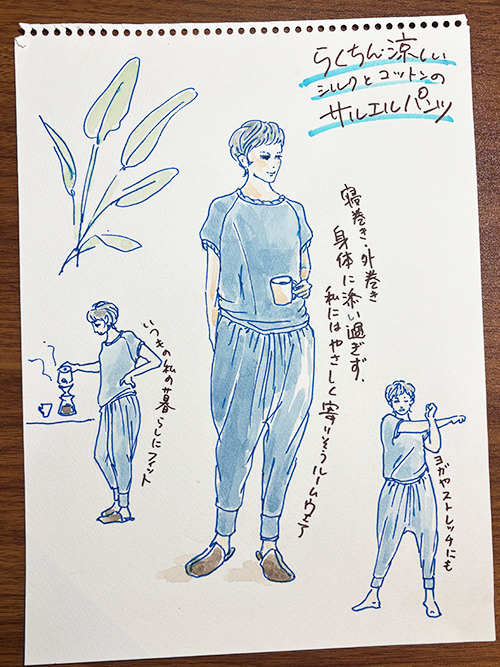 らくちん涼しい
シルクとコットンの
サルエルパンツ
寝巻き・外巻き
身体に添い過ぎず、
私にはやさしく寄りそうルームウェア
いつもの私の暮らしにフィット
ヨガやストレッチにも